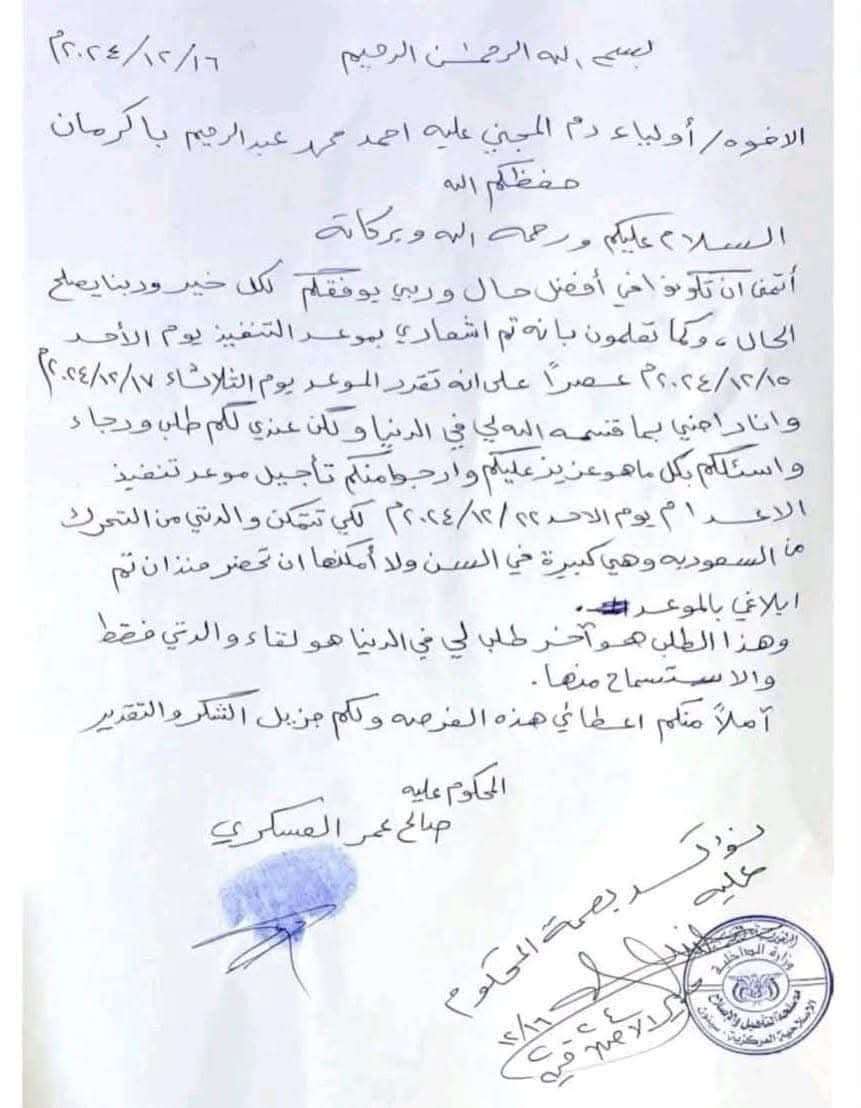 بسم الله الرحمن الرحيم ٢٠٢٤/١٢/١٦م
الاخوه/ أولياء دم المجني عليه احمد محمد عبدالرحيم باكرمان
حفظكم الله
السلام عليكم ورحمه الله وبركاتة
أتمنى ان تكونوا في أفضل حال وربي يوفقكم لكل خير وربنا يصلح
الحال، وكما تعلمون بانه تم اشعاري بموعد التنفيذ يوم الأحد
٢٠٢٤/١٢/١٥م عصراً على انه تقرر الموعد يوم الثلاثاء ٢٠٢٤/١٢/١٧م
وانا راضي بما قسمه الله لي في الدنيا ولكن عندي لكم طلب ورجاء
واسئلكم بكل ماهو عزيز عليكم وارجوا منكم تأجيل موعد تنفيذ
الاعدام يوم الاحد ٢٠٢٤/١٢/٢٢م لكي تتمكن والدتي من التحرك
من السعوديه وهي كبيرة في السن ولا أمكنها ان تحضر منذ ان تم
ابلاغي بالموعد.
وهذا الطلب هو آخر طلب لي في الدنيا هو لقاء والدتي فقط
والاستسماح منها.
آملاً منكم اعطائي هذه الفرصه ولكم جزيل الشكر والتقدير
المحكوم عليه
صالح عمر العسكري
نؤكد بصمة المحكوم
عليه
مدير الاصلاحية
١٢/١٦
٢٤
وزارة الداخلية
مصلحة التأهيل والإصلاح
الإصلاحية المركزية - سيئون